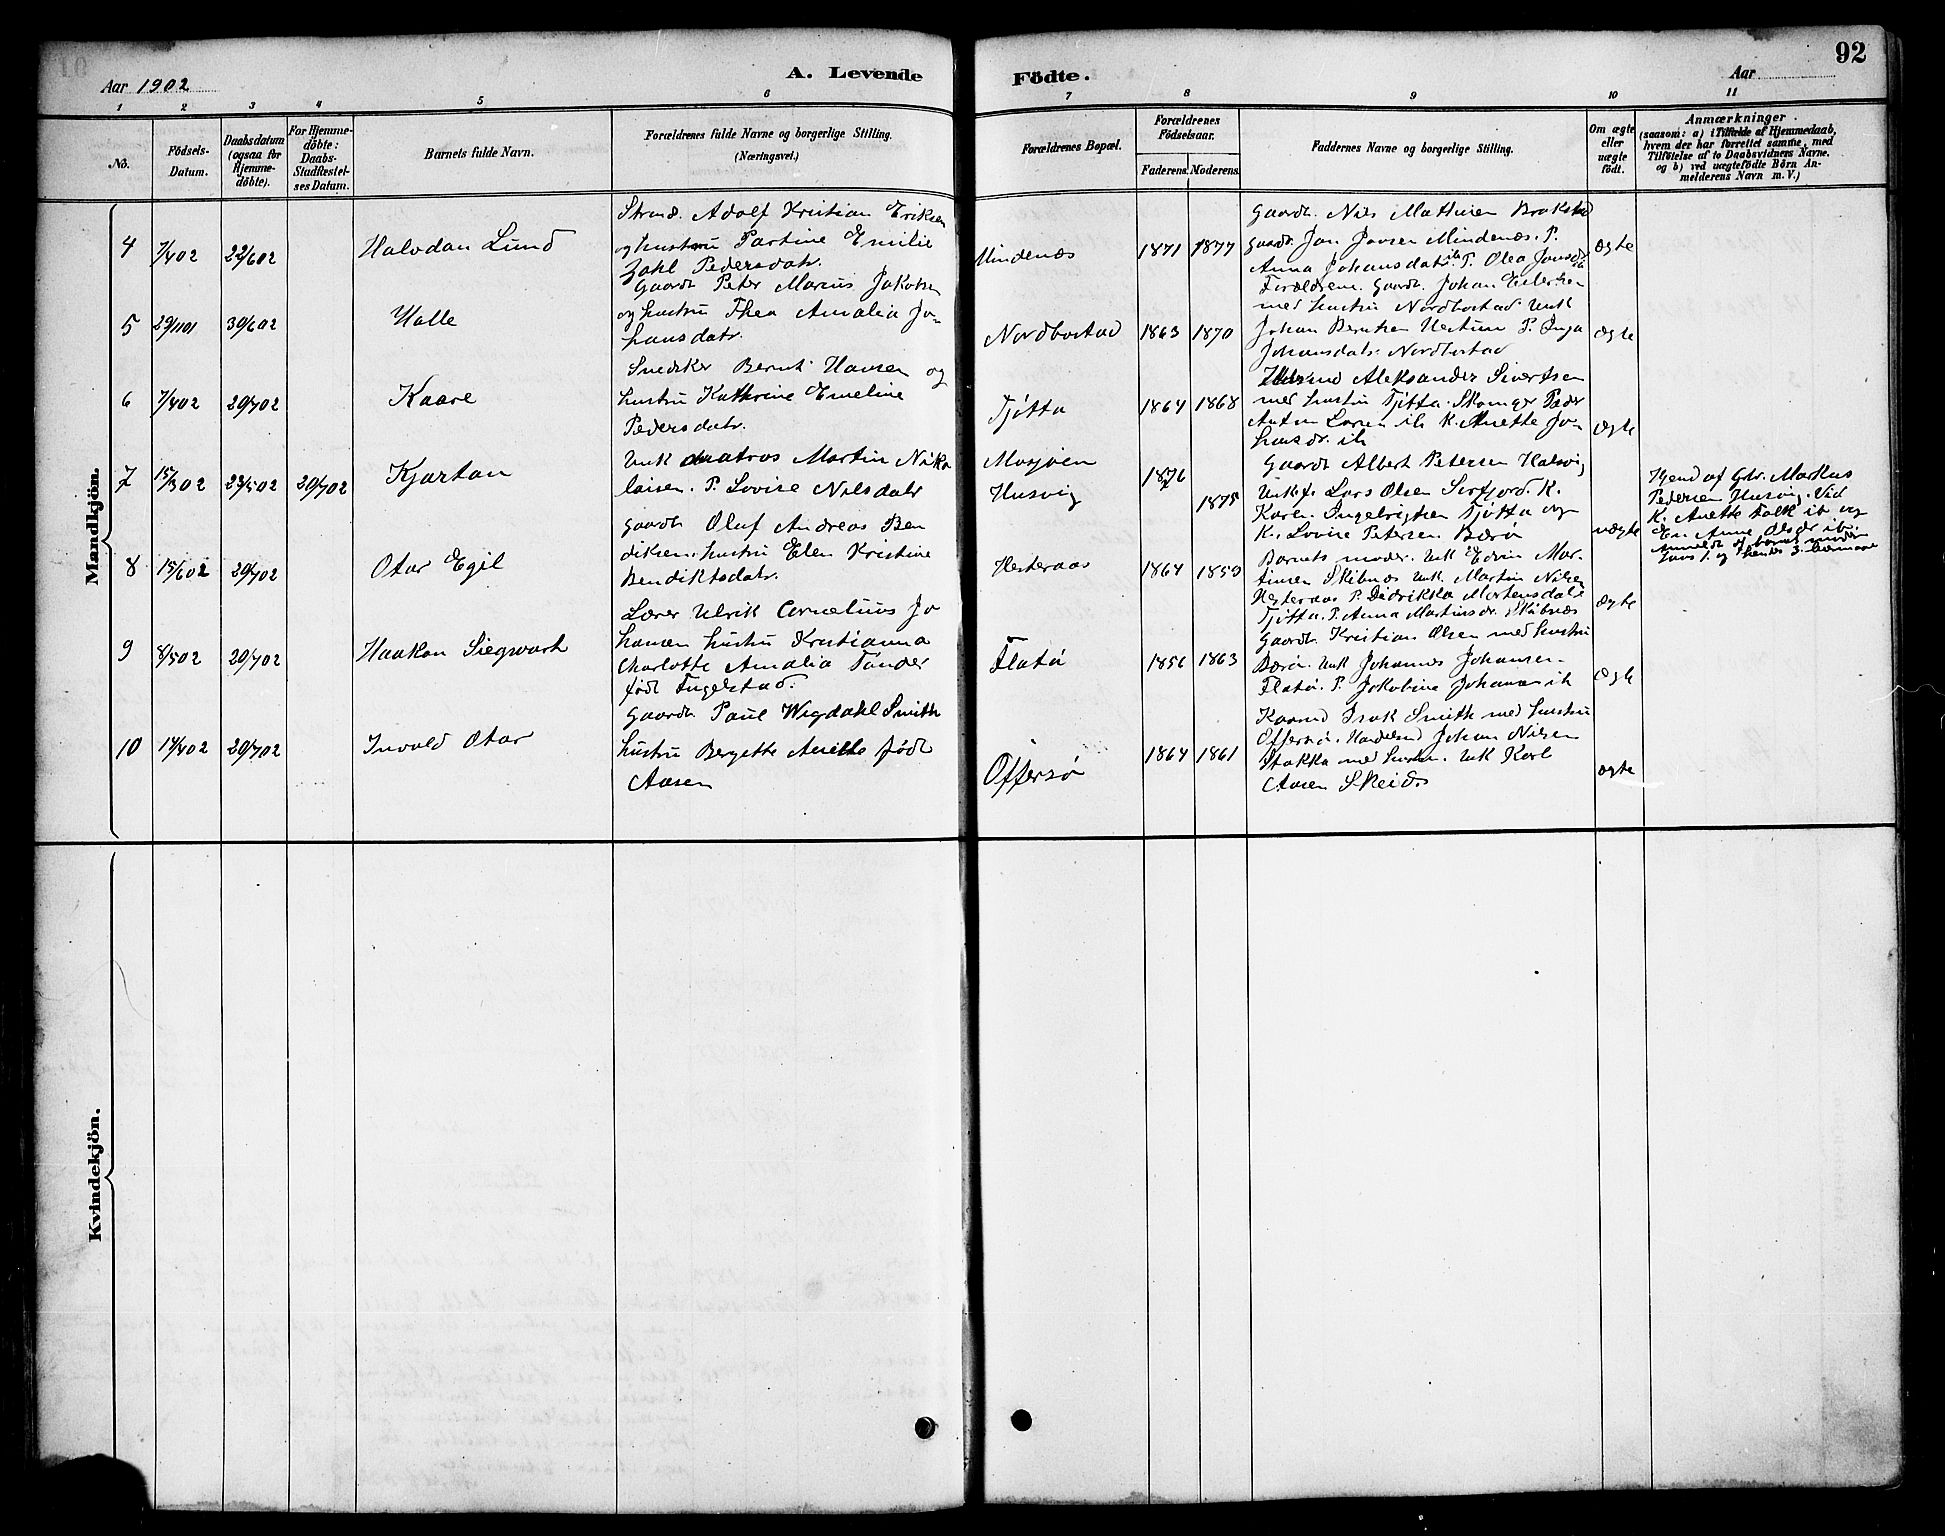 92
Aar 1902
A. Levende
Födte.
Aar
1 2 3 4 5 6 7 8 9 10 11
No.
Födsels-Datum.
Daabsdatum (ogsaa for Hjemmedöbte).
For Hjemmedöbte: Daabs-Stadfestelses Datum.
Barnets fulde Navn.
Forældrenes fulde Navne og borgerlige Stilling. (Næringsvei.)
Forældrenes Bopæl.
Forældrenes Födselsaar.
Faderens. Moderens.
Faddernes Navne og borgerlige Stilling.
Om ægte eller uægte födt.
Anmærkninger.
(saasom: a) i Tilfælde af Hjemmedaab,
hvem der har forrettet samme, med
Tilföielse af to Daabsvidners Navne,
og b) ved uægtefödte Börn An-
melderens Navn m. V.)
Mandkjön.
4 7/4 02 22/6 02 Halvdan Lund
Strand. Adolf Kristian Eriksen
og hustru Partine Emilie
Zahl Pedersdatr.
Mindenæs 1871 1877
Gaardb. Nils Mathisen Brakstad
Gaardb. Jan Jansen Mindenæs. P.
Anna Johansdatr ib. P. Olea Jonsdr ib
ægte
5 29/11 01 30/6 02 Halle
Gaardb Peter Marius Jakobsen
og hustru Thea Amalia Jo-
hansdatr.
Nordbostad 1863 1870
Forældrene. Gaardb. Johan Eilertsen
med hustru Nordbostad Unk
Johan Berntsen P. Inga
Johansdatr. Nordbostad
ægte
6 7/4 02 20/7 02 Kaare
Snedker Bernt Hansen og
hustru Kathrine Emeline
Pedersdatr.
Tjötta 1864 1868
Aleksander Sivertsen
med hustru Tjötta. Skomger Peder
Anton Larsen ib K. Anette Jo-
hansdr. ib
ægte
7 15/3 02 23/5 02 20/7 02 Kjartan
Unk matros Martin Niko
laisen. P. Lovise Nilsdatr
Mosjöen
Husvig
1876
1875
Gaardb Albert Petersen Halsvig
Unkf. Lars Olsen K.
Karen Ingebrigtsen Tjötta og
K. Lovise Petersen Bærö
uægte
Hjemd af Gbr. Markus
Pedersen Husvig. Vid
K. Anette Falk ib og
En. Anne Olsdr ib.
Anmeldt af barnets moder
8 15/6 02 20/7 02 Otar Egil
Gaardb Oluf Andreas Ben
diksen. hustru Elen Kristine
Bendiktsdatr.
Hesteraas 1864 1859
Barnets moder. Unk Edvin Mar-
tinsen Skibnæs Unk. Martin Nilsen
Hesteraas P. Didrikka Mortensdatr
Tjötta. P. Anna Martinsdr. Skibnæs
ægte
9 8/5 02 20/7 02 Haakon Siegwart
Lærer Ulrik Cornelius Jo
hansen hustru Kristianna
Charlotte Amalia Tander
födt Ingelstad.
Flatö 1856 1863
Gaardb. Kristian Olsen med hustru
Bærö. Unk Johannes Johansen
Flatö. P. Jakobine Johansen ib
ægte
10 14/4 02 20/7 02 Invald Otar
Gaardb. Paul Wigdahl Smith
hustru Bergette Anette födt
Aasen
Offersö 1864 1861
Isak Smith med hustru
Offersö. Handelsmd Johan Nilsen
Stokka med hustru. Unk Karl
Aasen Skeids
ægte
Kvindekjön.